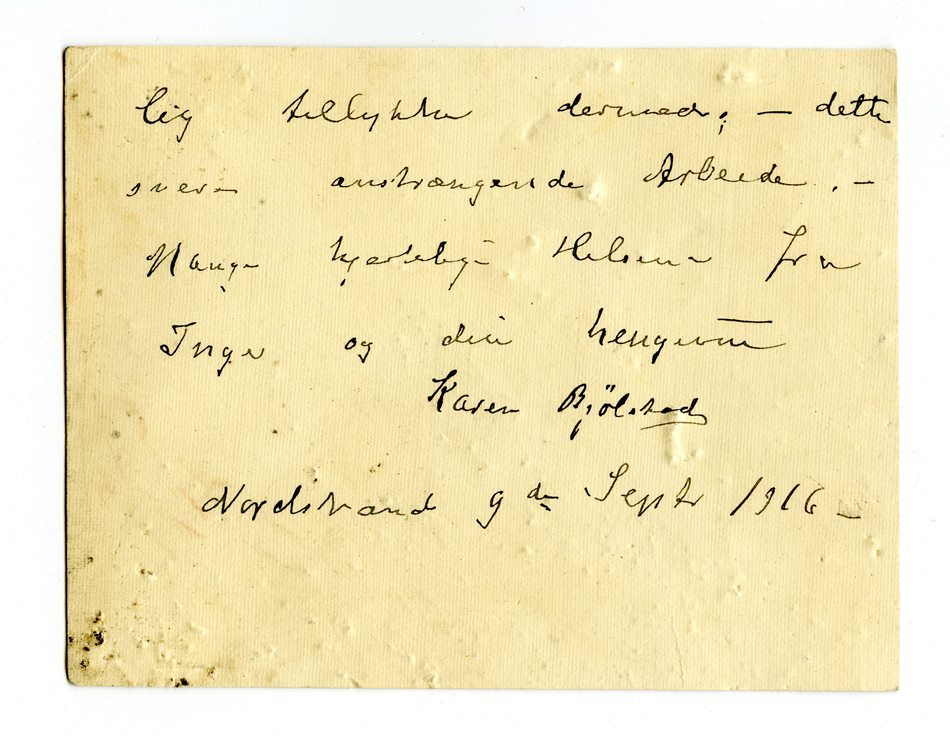 lig tillykke dermed; – dette
svere anstrængende Arbeide. –
Mange hjertelige Helsener fra
Inger og din hengivne
Karen Bjölstad
Nordstrand 9de Septr 1916 –